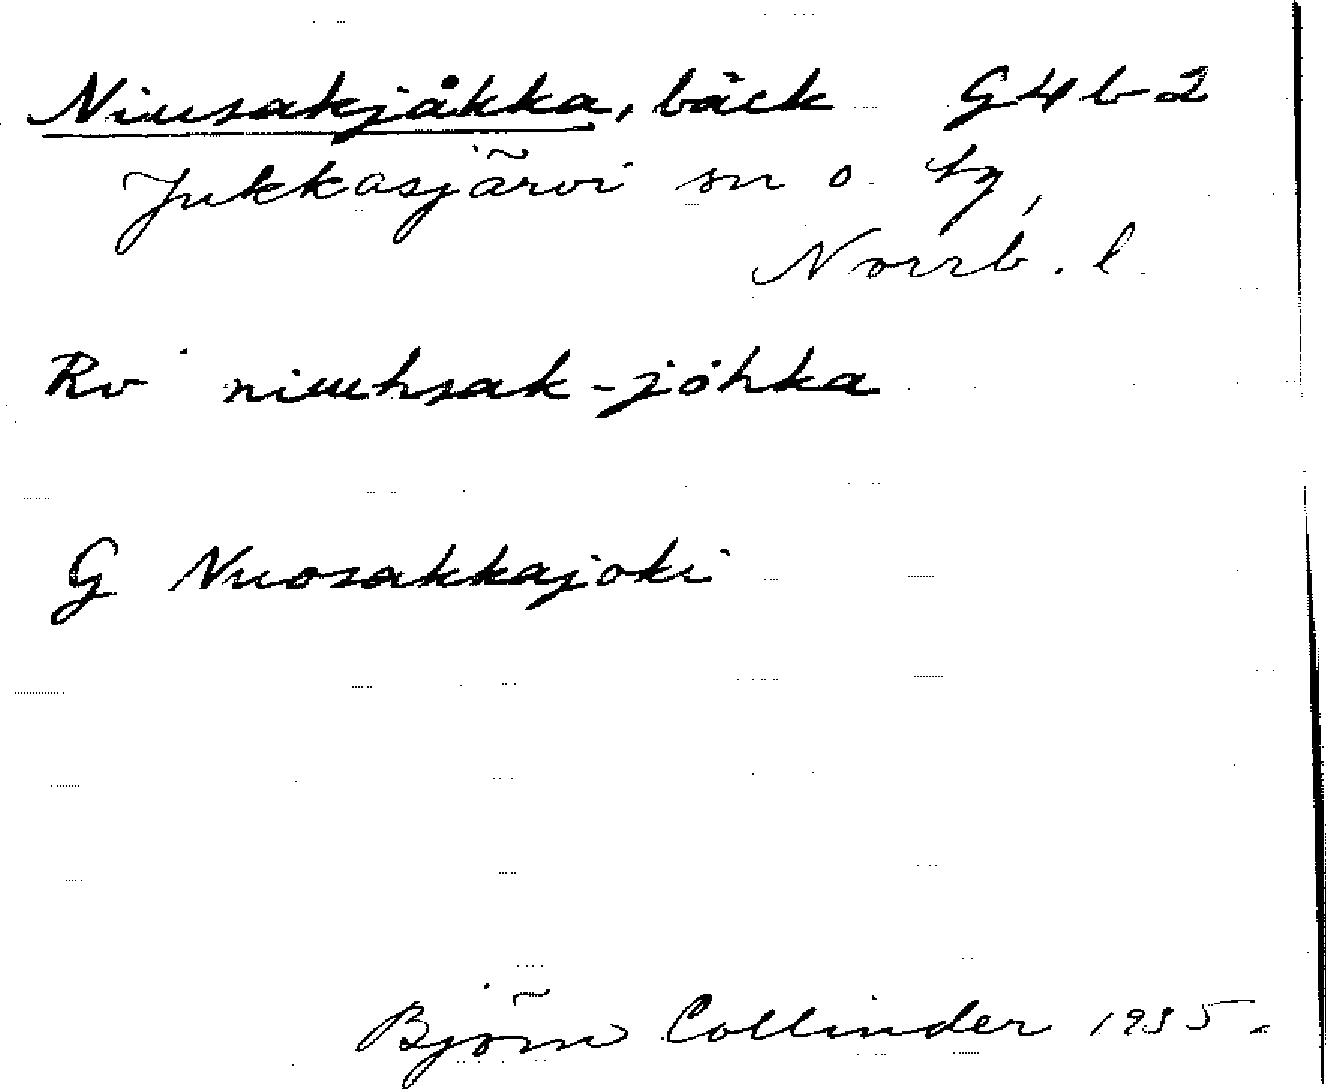 Niusakjåkka, bäck G4b2
Jukkasjärvi sn o. tg,
Norrb. l.
Rv niuhsak-johka
G Nuosakkajoki
Björn Collinder 1935.